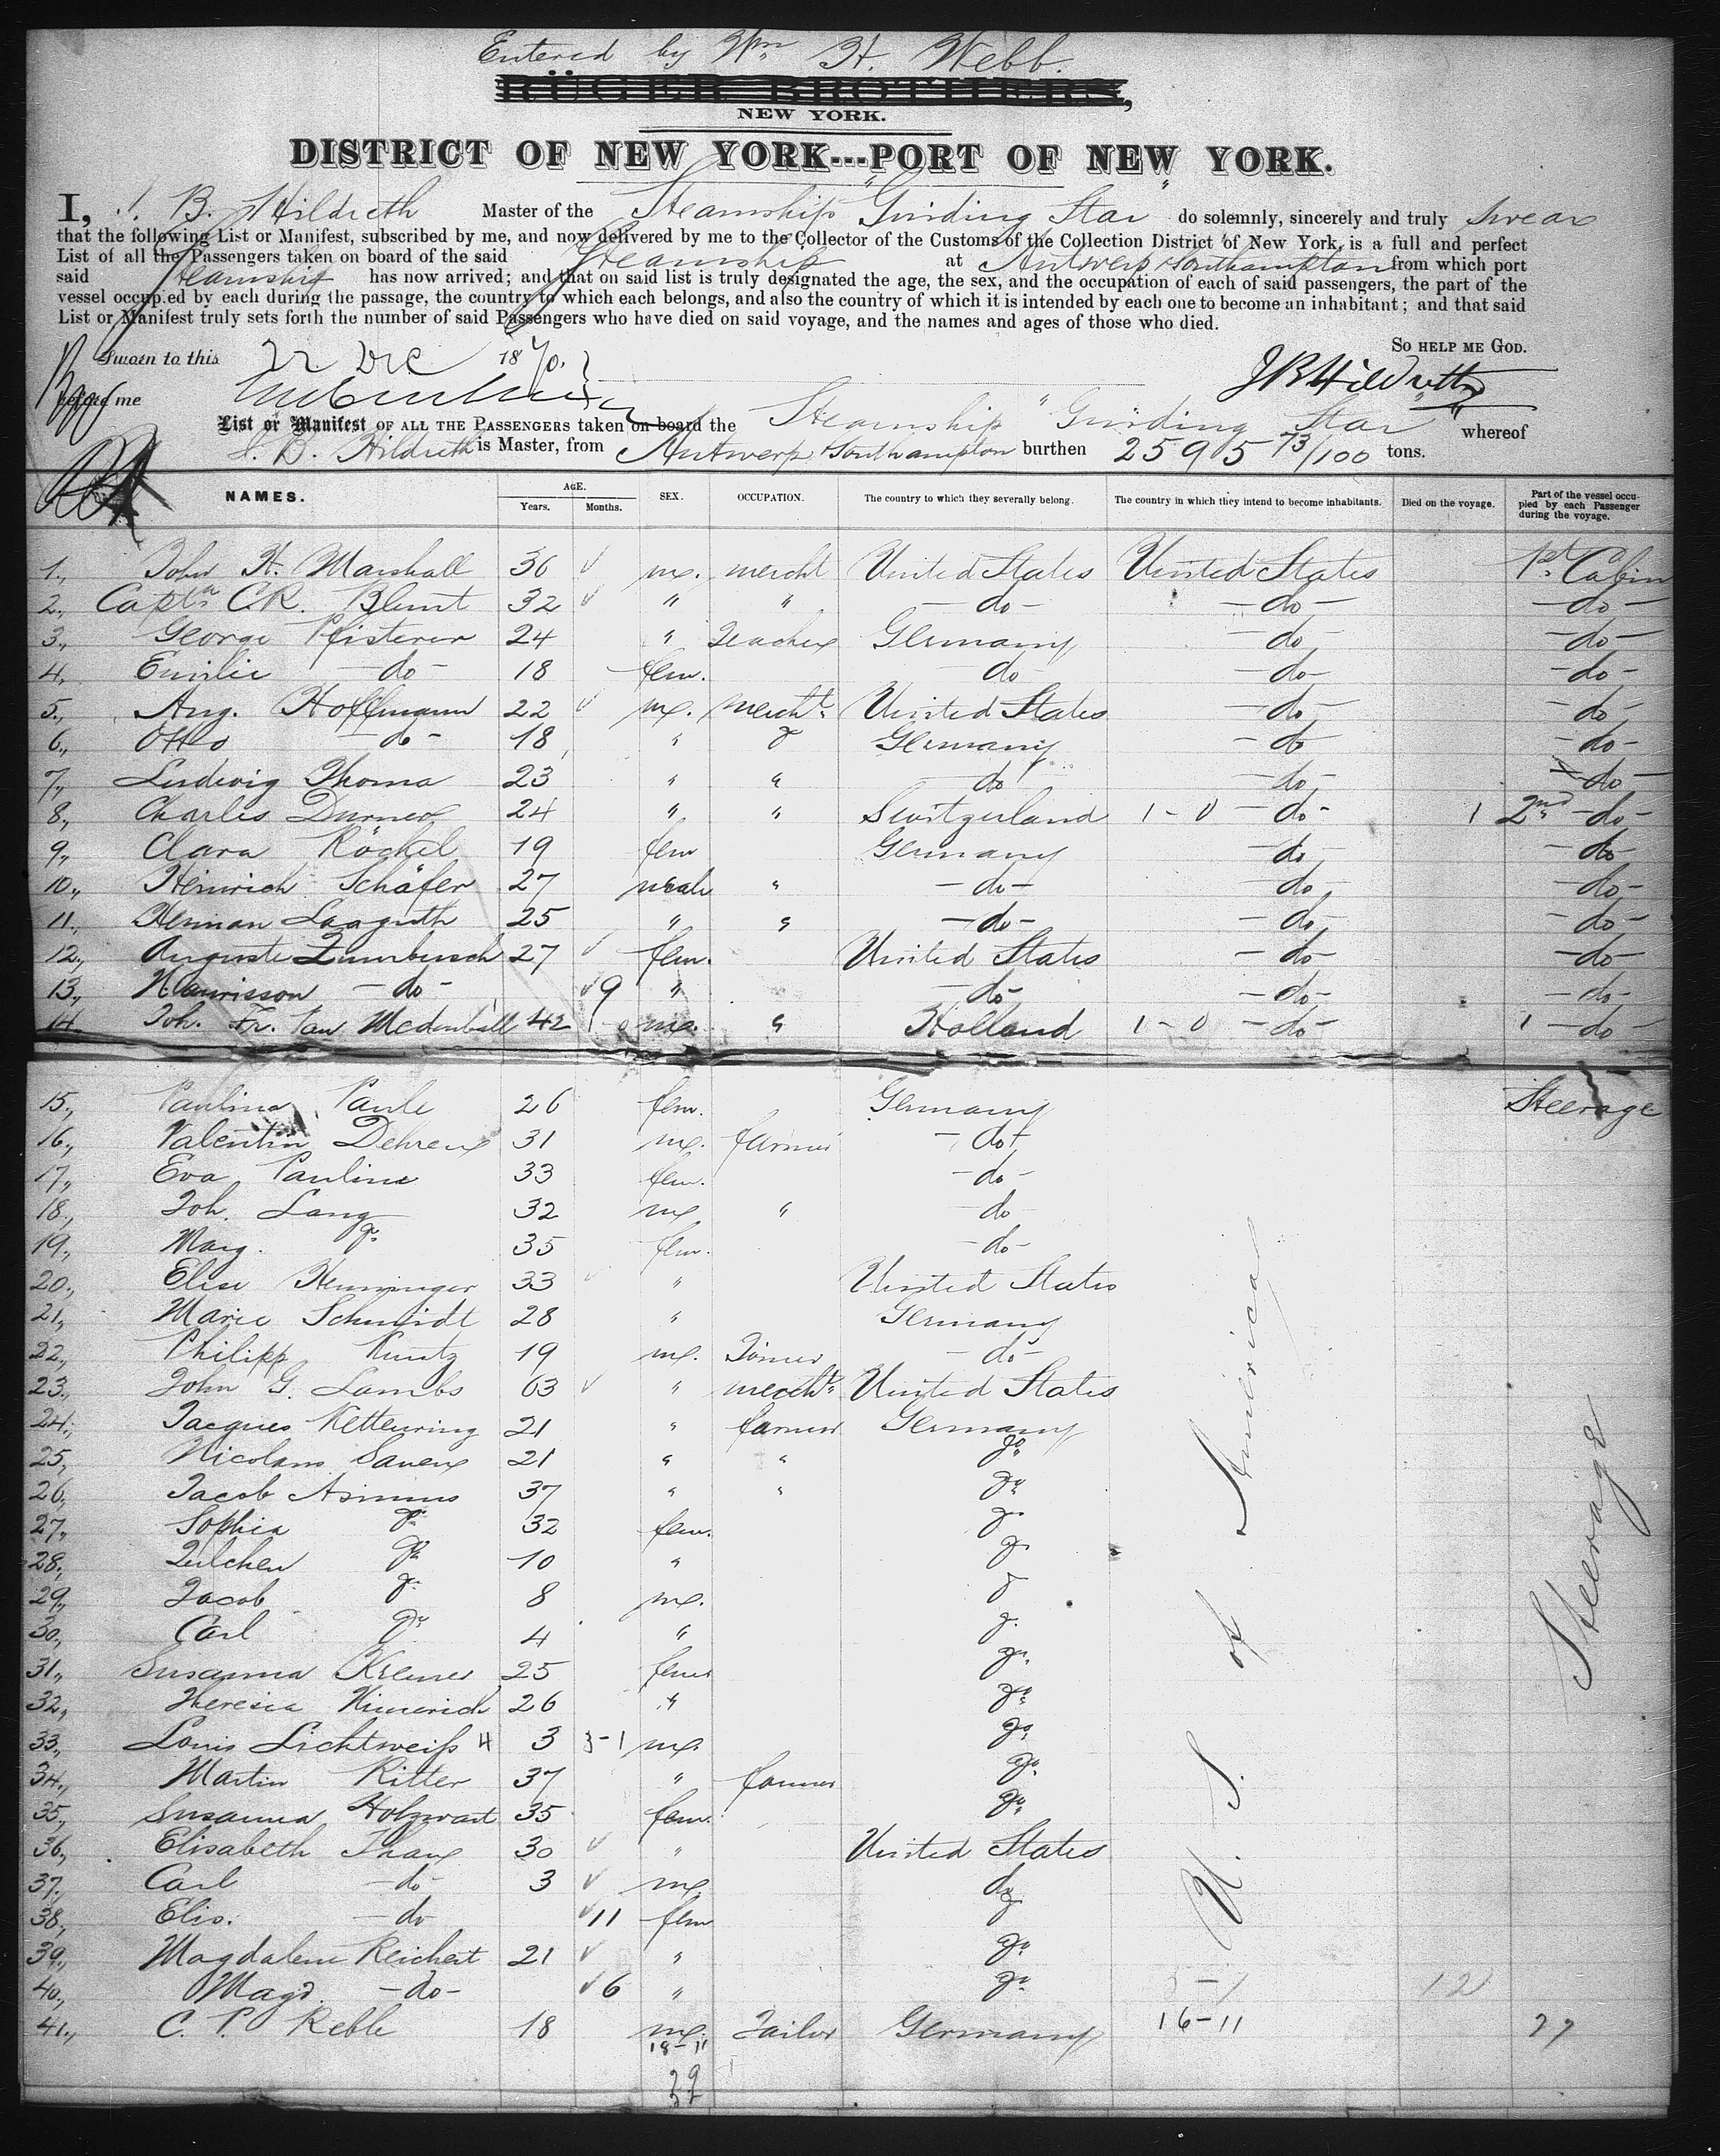 Entered by Wm H. Webb.
RÜGER BROTHERS,
NEW YORK.
DISTRICT OF NEW YORK---PORT OF NEW YORK.
I, J. B. Hildreth Master of the Steamship "Guiding Star" do solemnly, sincerely and truly swear
that the following List or Manifest, subscribed by me, and now delivered by me to the Collector of the Customs of the Collection District of New York, is a full and perfect
List of all the Passengers taken on board of the said Steamship at Antwerp & Southampton from which port
said Steamship has now arrived; and that on said list is truly designated the age, the sex, and the occupation of each of said passengers, the part of the
vessel occupied by each during the passage, the country to which each belongs, and also the country of which it is intended by each one to become an inhabitant; and that said
List or Manifest truly sets forth the number of said Passengers who have died on said voyage, and the names and ages of those who died.
SO HELP ME GOD.
Sworn to this 22 Dec 1870.
JB Hildreth
before me
List or Manifest OF ALL THE PASSENGERS taken on board the Steamship "Guiding Star" whereof
J. B. Hildreth is Master, from Antwerp & Southampton burthen 2595 73/100 tons.
NAMES. AGE. Years. Months. SEX. OCCUPATION. The country to which they severally belong. The country in which they intend to become inhabitants. Died on the voyage. Part of the vessel occupied by each Passenger during the voyage.
1., John H. Marshall 36 m. mercht United States United States 1st Cabin
2., Captn C.R. Blunt 32 " " -do- -do- -do-
3., George Pfisterer 24 " Teacher Germany -do- -do-
4., Emilie -do- 18 fem. do -do- -do-
5., Aug. Hoffmann 22 m. mercht. United States -do- -do-
6., Otto -do- 18 " do Germany -do -do-
7., Ludwig Thoma 23 " " do -do- -do-
8., Charles Durner 24 " " Switzerland 1-0 -do- 1 2nd -do-
9., Clara Röchel 19 fem Germany -do- -do-
10., Heinrich Schäfer 27 male " -do- do -do-
11., Herman Langguth 25 " " -do- -do- -do-
12., Auguste Zumbusch 27 fem. United States -do- -do-
13., -do- 9 " -do- -do- -do-
14. Joh. Fr. van 42 m. " Holland 1-0 -do- 1 -do-
15., Paulina Paule 26 fem. Germany Steerage
16., Valentin Dehren 31 m. farmer -do-
17., Eva Pauline 33 fem. -do-
18., Joh. Lang 32 m " do
19., Marg. do 35 fem. -do-
20., Elise Henninger 33 " United States
21., Marie Schmidt 28 " Germany
22., Philipp Kuntz 19 m. -do-
23., John G. Lambs 63 " mercht. United States
24., Jacques Kettenring 21 " farmer Germany
25., Nicolaus 21 " " do
26., Jacob Asimus 37 " " do
27., Sophia do 32 fem. do
28., Julchen do 10 " do
29., Jacob do 8 m. do
30., Carl do 4 " do
31., Susanna Kremer 25 fem do
32., Theresia Kimerich 26 " do
33., Louis Lichtweiß H 3 3-1 m. do
34., Martin Ritter 37 " farmer do
35., Susanna Holzwart 35 fem. do
36., Elisabeth 30 " United States
37. Carl -do- 3 m do
38., Elis. -do 11 fem do
39., Magdalene Reichert 21 " do
40., Magd. -do- 6 " do 12
41., C. P. Reble 18 m. Tailor Germany 16-11 27
U. S. of America
Steerage
18-11